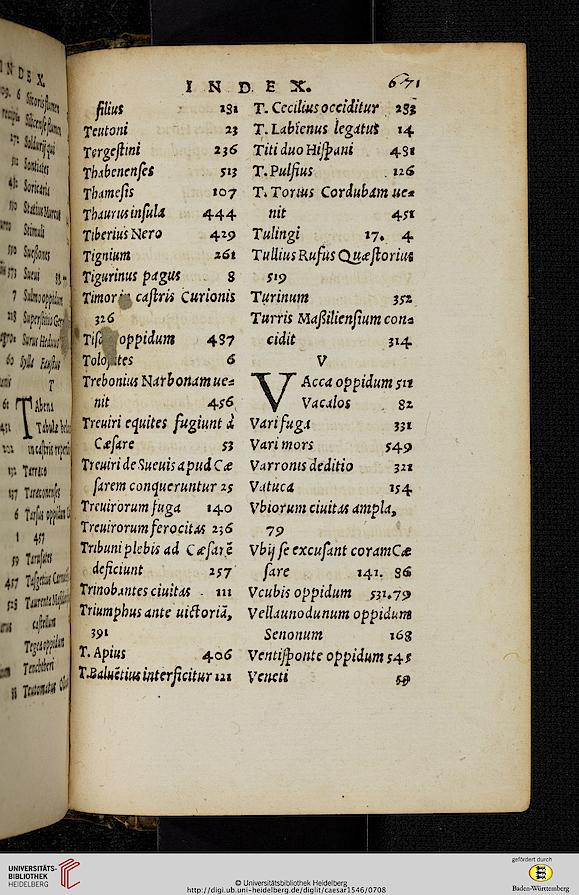 INDEX.
671
filius 181
Teutoni 23
Tergestini 236
Thabenenses 513
Thamesis 107
Thaurus insula 444
Tiberius Nero 429
Tignium 261
Tigurinus pagus 8
castris Curionis
326
oppidum 487
6
Trebonius Narbonam ue=
nit 456
Treuiri equites fugiunt à
Cæsare 53
Treuiri de Sueuis apud Cæ
sarem conqueruntur 25
Treuirorum fuga 140
Treuirorum ferocitas 236
Tribuni plebis ad Cæsarẽ
deficiunt 257
Trinobantes ciuitas . 111
Triumphus ante uictoriã,
391
T. Apius 406
T. Baluẽtius interficitur 121
T. Cecilius occiditur 283
T. Labienus legatus 14
Titi duo Hispani 481
T. Pulfius 126
T. Torius Cordubam ue=
nit 451
Tulingi 17. 4
Tullius Rufus Quæstorius
519
Turinum 352
Turris Massiliensium con=
cidit 314
V
VAcca oppidum 511
Vacalos 82
Vari fuga 331
Vari mors 549
Varronis deditio 321
Vatuca 154
Vbiorum ciuitas ampla,
79
Vbij se excusant coram Cæ
sare 141. 86
Vcubis oppidum 531.79
Vellaunodunum oppidum
Senonum 168
Ventisponte oppidum 545
Veneti 59
INDEX.
Sontiates
Soricaria
Statius Marcus
Stimuli
Suessones
Sueui
T
TAbena
Terrace
UNIVERSITÄTS-
BIBLIOTHEK
HEIDELBERG
© Universitätsbibliothek Heidelberg
http://digi.ub.uni-heidelberg.de/diglit/caesar1546/0708
gefördert durch
Baden-Württemberg